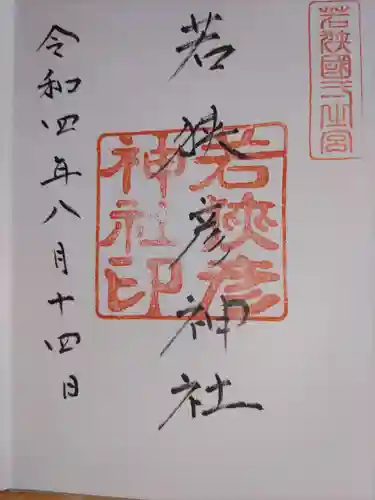 若狭國一之宮
若狭彦神社
若狭彦
神社印
令和四年八月十四日